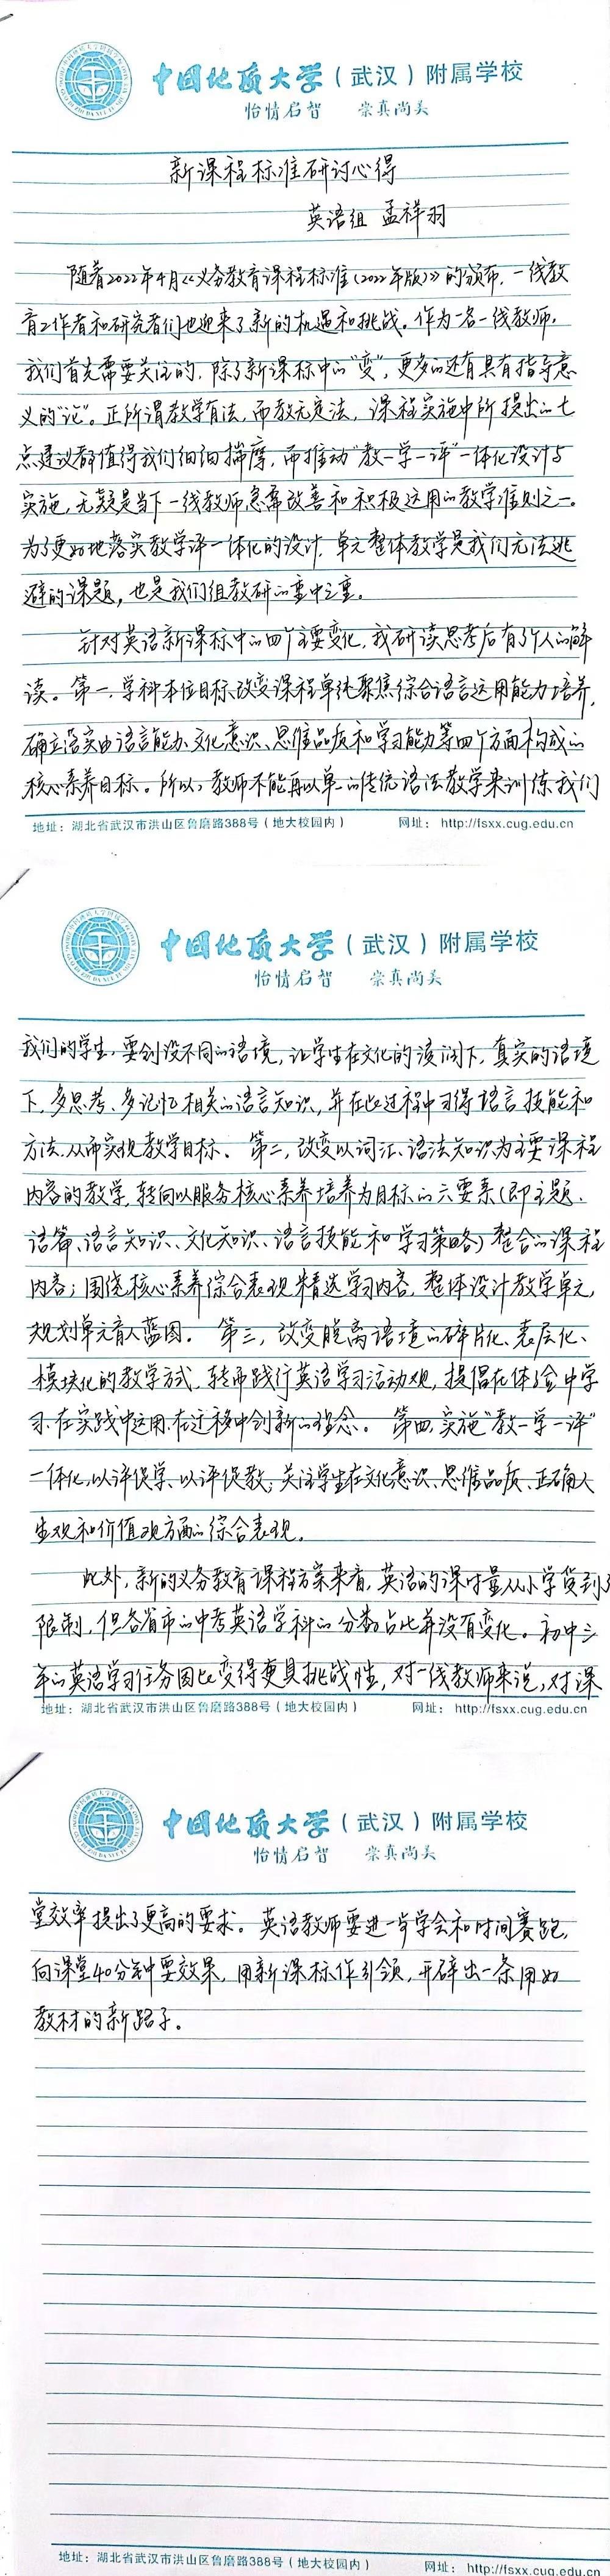 中国地质大学（武汉）附属学校
怡情启智 崇真尚美
新课程标准研讨心得
英语组 孟祥羽
随着2022年4月《义务教育课程标准（2022年版）》的颁布，一线教
育工作者和研究者们也迎来了新的机遇和挑战。作为一名一线教师，
我们首先需要关注的，除了新课标中的“变”，更多的还有具有指导意
义的“论”。正所谓教学有法，而教无定法，课程实施中所提出的七
点建议都值得我们细细揣摩，而推动“教—学—评”一体化设计与
实施，无疑是当下一线教师急需改善和积极运用的教学准则之一。
为了更好地落实教学评一体化的设计，单元整体教学是我们无法逃
避的课题，也是我们组教研的重中之重。
针对英语新课标中的四个主要变化，我研读思考后有了个人的解
读。第一，学科本位目标改变课程单纯聚焦综合语言运用能力培养，
确立落实由语言能力、文化意识、思维品质和学习能力等四个方面构成的
核心素养目标。所以，教师不能再以单一的传统语法教学来训练我们
地址：湖北省武汉市洪山区鲁磨路388号（地大校园内） 网址：http://fsxx.cug.edu.cn
中国地质大学（武汉）附属学校
怡情启智 崇真尚美
我们的学生，要创设不同的语境，让学生在文化的浸润下，真实的语境
下，多思考、多记忆相关的语言知识，并在此过程中习得语言技能和
方法，从而实现教学目标。第二，改变以词汇、语法知识为主要课程
内容的教学，转向以服务核心素养培养为目标的六要素（即主题、
语篇、语言知识、文化知识、语言技能和学习策略）整合的课程
内容；围绕核心素养综合表现精选学习内容，整体设计教学单元，
规划单元育人蓝图。第三，改变脱离语境的碎片化、表层化、
模块化的教学方式，转而践行英语学习活动观，提倡在体验中学
习、在实践中运用、在迁移中创新的理念。第四，实施“教—学—评”
一体化，以评促学、以评促教；关注学生在文化意识、思维品质、正确人
生观和价值观方面的综合表现。
此外，新的义务教育课程方案来看，英语的课时量从小学货到了
限制，但各省市的中考英语学科的分数占比并没有变化。初中三
年的英语学习任务因此变得更具挑战性，对一线教师来说，对课
地址：湖北省武汉市洪山区鲁磨路388号（地大校园内） 网址：http://fsxx.cug.edu.cn
中国地质大学（武汉）附属学校
怡情启智 崇真尚美
堂效率提出了更高的要求。英语教师要进一步学会和时间赛跑，
向课堂40分钟要效果，用新课标作引领，开辟出一条用好
教材的新路子。
地址：湖北省武汉市洪山区鲁磨路388号（地大校园内） 网址：http://fsxx.cug.edu.cn